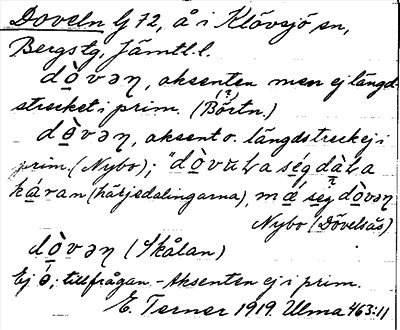 Doveln G 72, å i Klövsjö sn,
Bergs tg, Jämtl. l.
dòvən, aksenten men ej längd-
strecket i prim. (Börtn.) (?)
dòvən, aksent o. längdstreck ej i
prim. (Nybo); dòvaLa ségdàLa
háran (härjedalingarna), mǽ ség dòvən
Nybo (Dövelsås)
dòvən (Skålan)
Ej ó; tillfrågan. - Aksenten ej i prim.
E. Terner 1919. Ulma 463:11